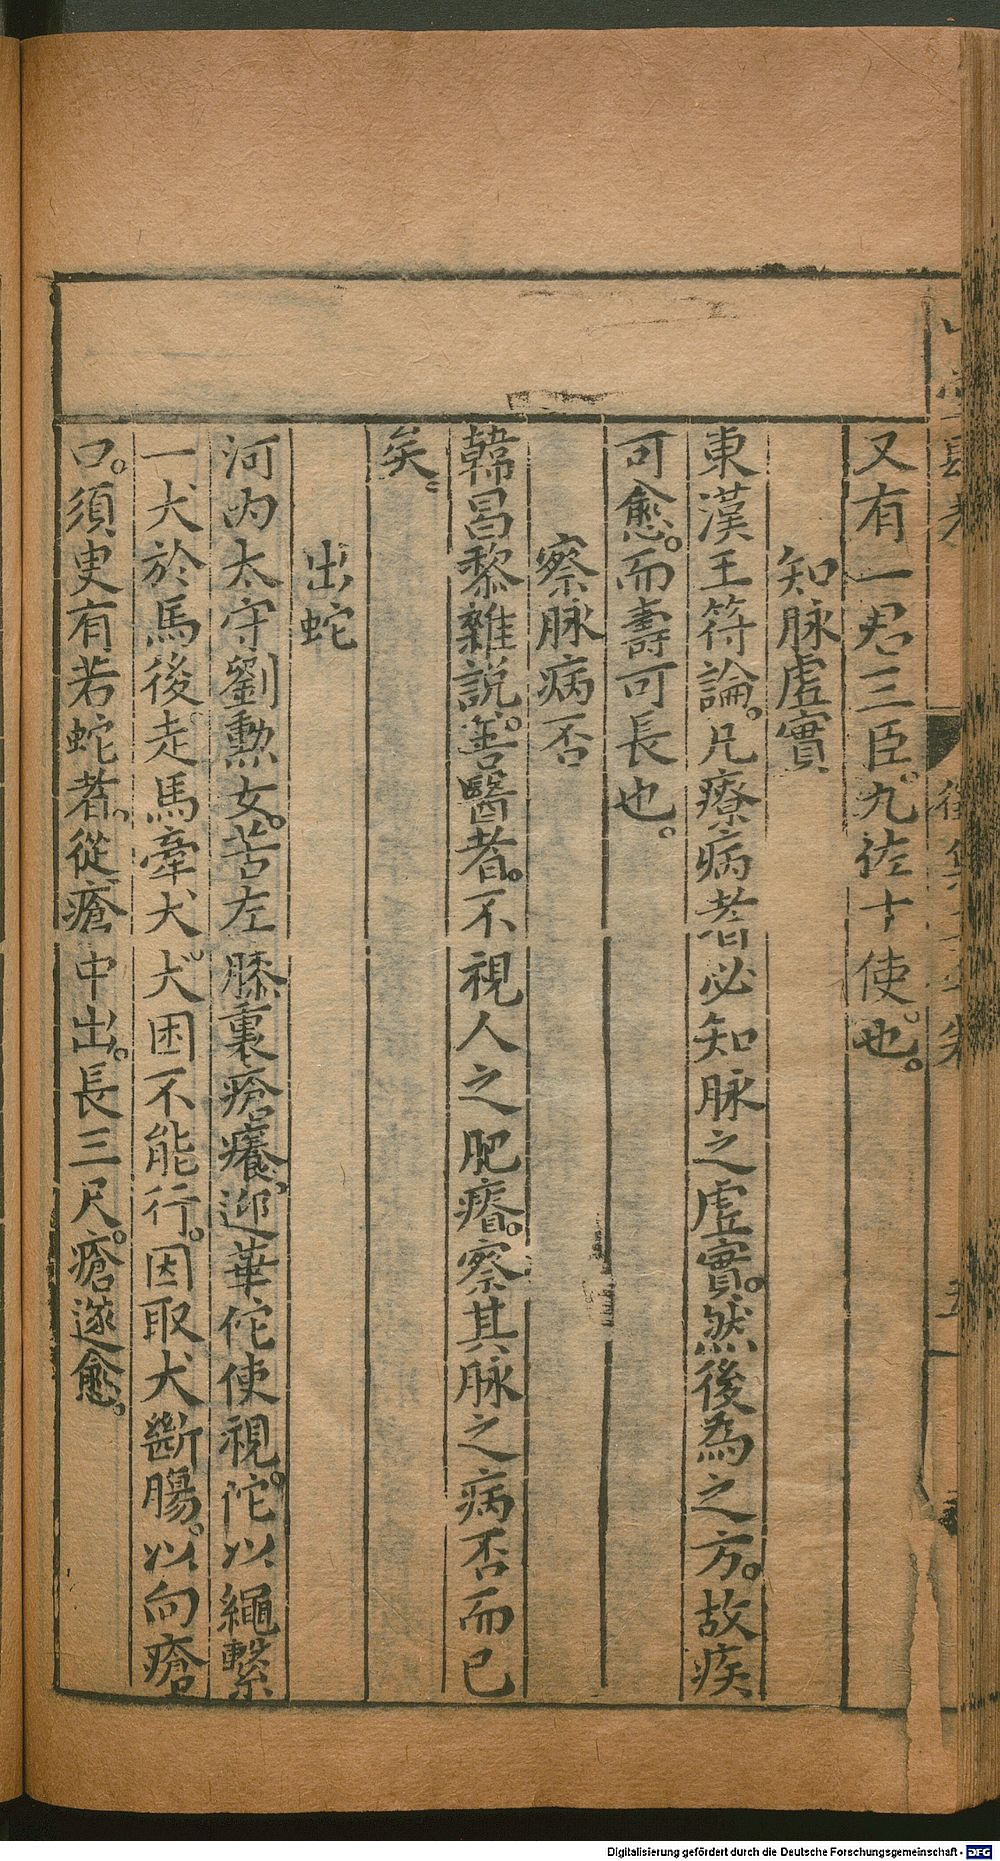 又有一君三臣。九佐十使。也。
知脉虛實
東漢王符論。凡療病者必知脉之虛實。然後為之方。故疾
可愈。而壽可長也。
察脉病否
韓昌黎雜說。善醫者。不視人之肥瘠。察其脉之病否而已
矣。
出蛇
河內太守劉勳女。苦左膝裏瘡癢。迎華佗使視。佗以繩繫
一犬於馬後。走馬牽犬。犬困不能行。因取犬斷腸。以向瘡
口。須臾有若蛇者。從瘡中出。長三尺。瘡遂愈。
Digitalisierung gefördert durch die Deutsche Forschungsgemeinschaft - DFG